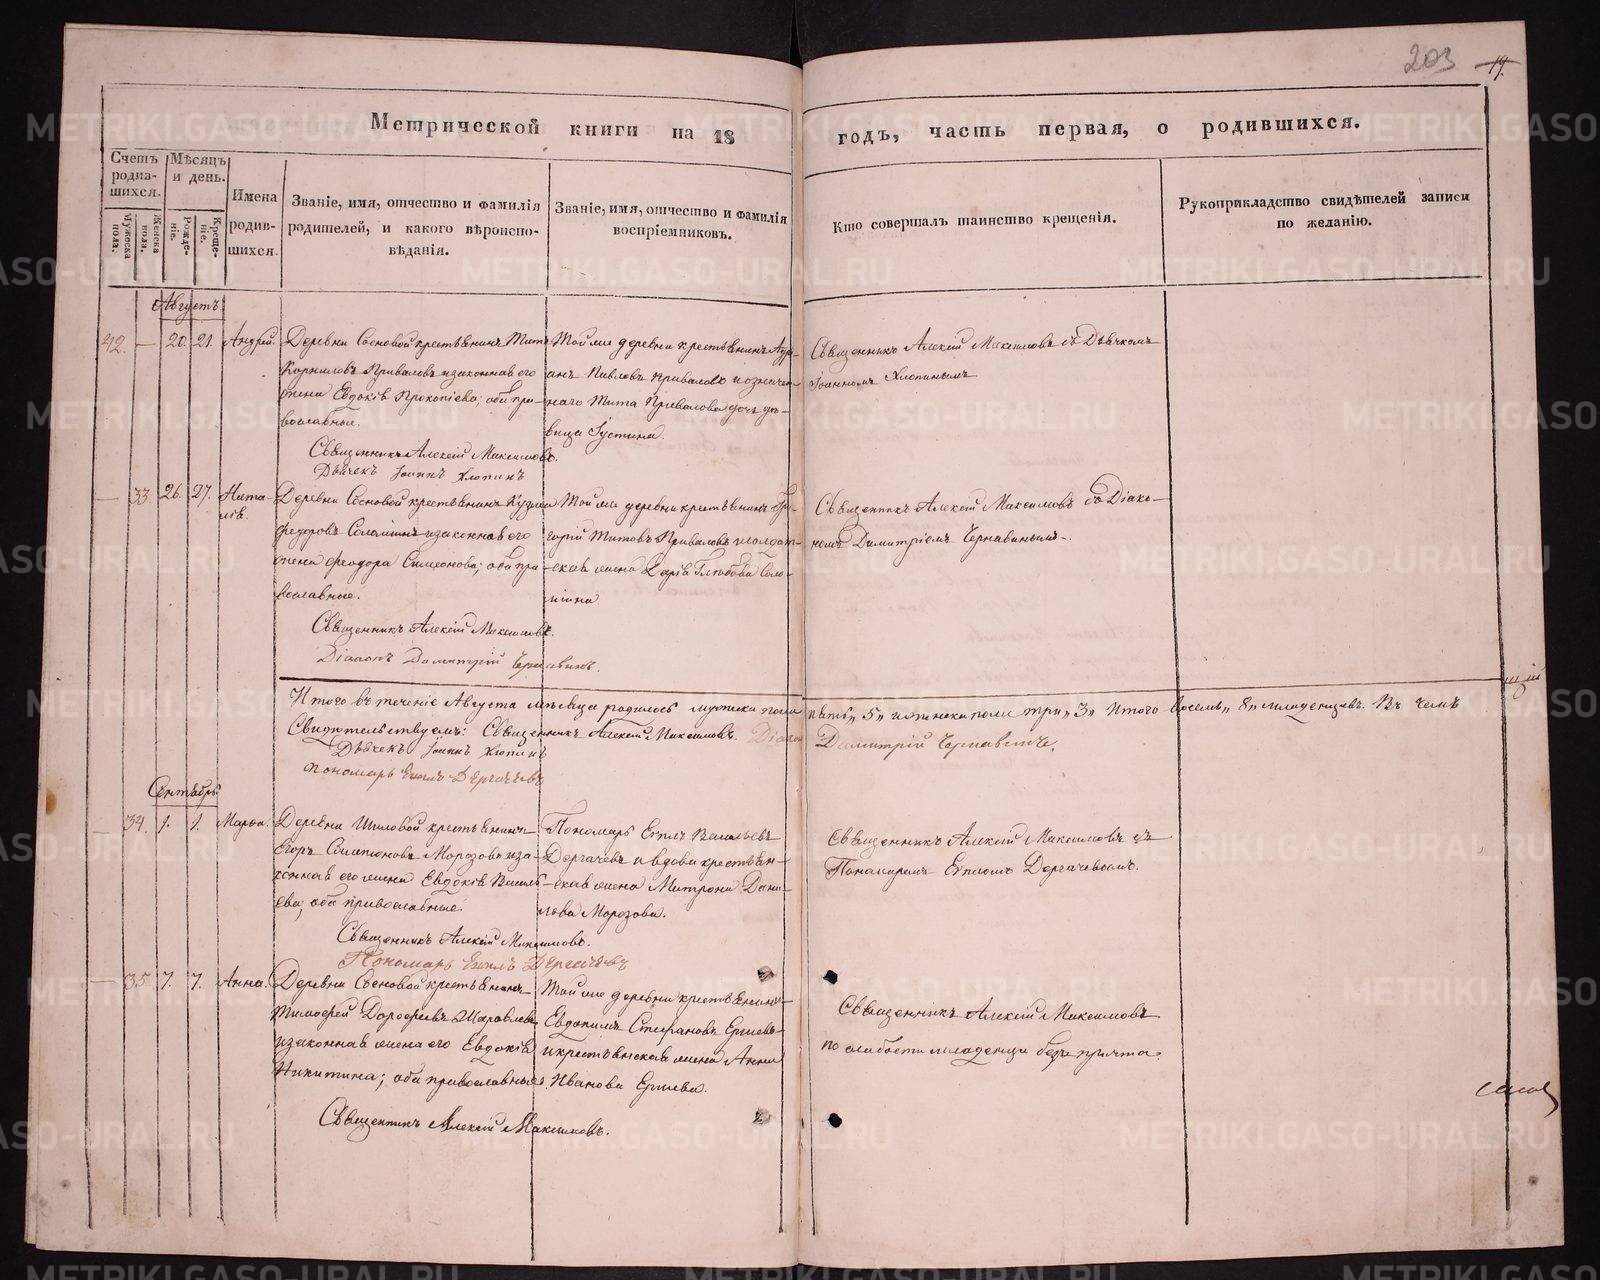 203
19.
Метрической книги на 18 годъ, часть первая, о родившихся.
Счетъ родив-шихся.
Мужеска пола.
Женска пола.
Мѣсяцъ и день.
Рожде-ніе.
Креще-ніе.
Имена родив-шихся.
Званіе, имя, отчество и фамилія
родителей, и какого вѣроиспо-
вѣданія.
Званіе, имя, отчество и фамилія
воспріемниковъ.
Кто совершалъ таинство крещенія.
Рукоприкладство свидѣтелей записи
по желанію.
Августъ
42. — 20. 21. Андрей.
Деревни Сосновой крестьянинъ Титъ
Корниловъ Приваловъ и законная его
жена Евдокія Прокопіева; оба пра-
вославные.
Священникъ Алексій Максимовъ.
Дьячекъ Іоаннъ Хлопинъ
Той же деревни крестьянинъ Адрі-
анъ Павловъ Приваловъ и означен-
наго Тита Привалова дочь дѣ-
вица Іустина.
Священникъ Алексій Максимовъ съ Дьячкомъ
Іоанномъ Хлопинымъ
— 33. 26. 27. Ната-
лія.
Деревни Сосновой крестьянинъ Кузма
Федоровъ Соломинъ и законная его
жена Феодора Симеонова; оба пра-
вославные.
Священникъ Алексій Максимовъ.
Діаконъ Димитрій Чернавинъ.
Той же деревни крестьянинъ Гри-
горій Титовъ Приваловъ и солдат-
ская жена Дарія Глѣбова Соло-
мина
Священникъ Алексій Максимовъ съ Діако-
номъ Димитріемъ Чернавинымъ.
Итого въ теченіе Августа мѣсяца родилось мужеска пола пять „5„ и женска пола три „3„ Итого восемь „8„ младенцевъ. Въ чемъ
Свидѣтельствуемъ: Священникъ Алексій Максимовъ. Діаконъ Димитрій Чернавинъ.
Дьячекъ Іоаннъ Хлопинъ
Пономарь Еѵплъ Дергачевъ
Сентябрь
— 34. 1. 1. Марья.
Деревни Шиловой крестьянинъ
Егоръ Симеоновъ Морозовъ и за-
конная его жена Евдокія Василь-
ева; оба православные.
Священникъ Алексій Максимовъ.
Пономарь Еѵплъ Дергачевъ
Пономарь Еѵплъ Васильевъ
Дергачевъ и вдова крестьян-
ская жена Матрона Дани-
лова Морозова.
Священникъ Алексій Максимовъ съ
Пономаремъ Еѵпломъ Дергачевымъ.
— 35. 7. 7. Анна.
Деревни Сосновой крестьянинъ
Тимофей Дорофеевъ Журавлевъ
и законная жена его Евдокія
Никитина; оба православные.
Священникъ Алексій Максимовъ.
Той же деревни крестьянинъ
Евдокимъ Стефановъ Ершевъ
и крестьянская жена Анна
Иванова Ершева.
Священникъ Алексій Максимовъ
по слабости младенца безъ причта.
METRIKI.GASO-URAL.RU